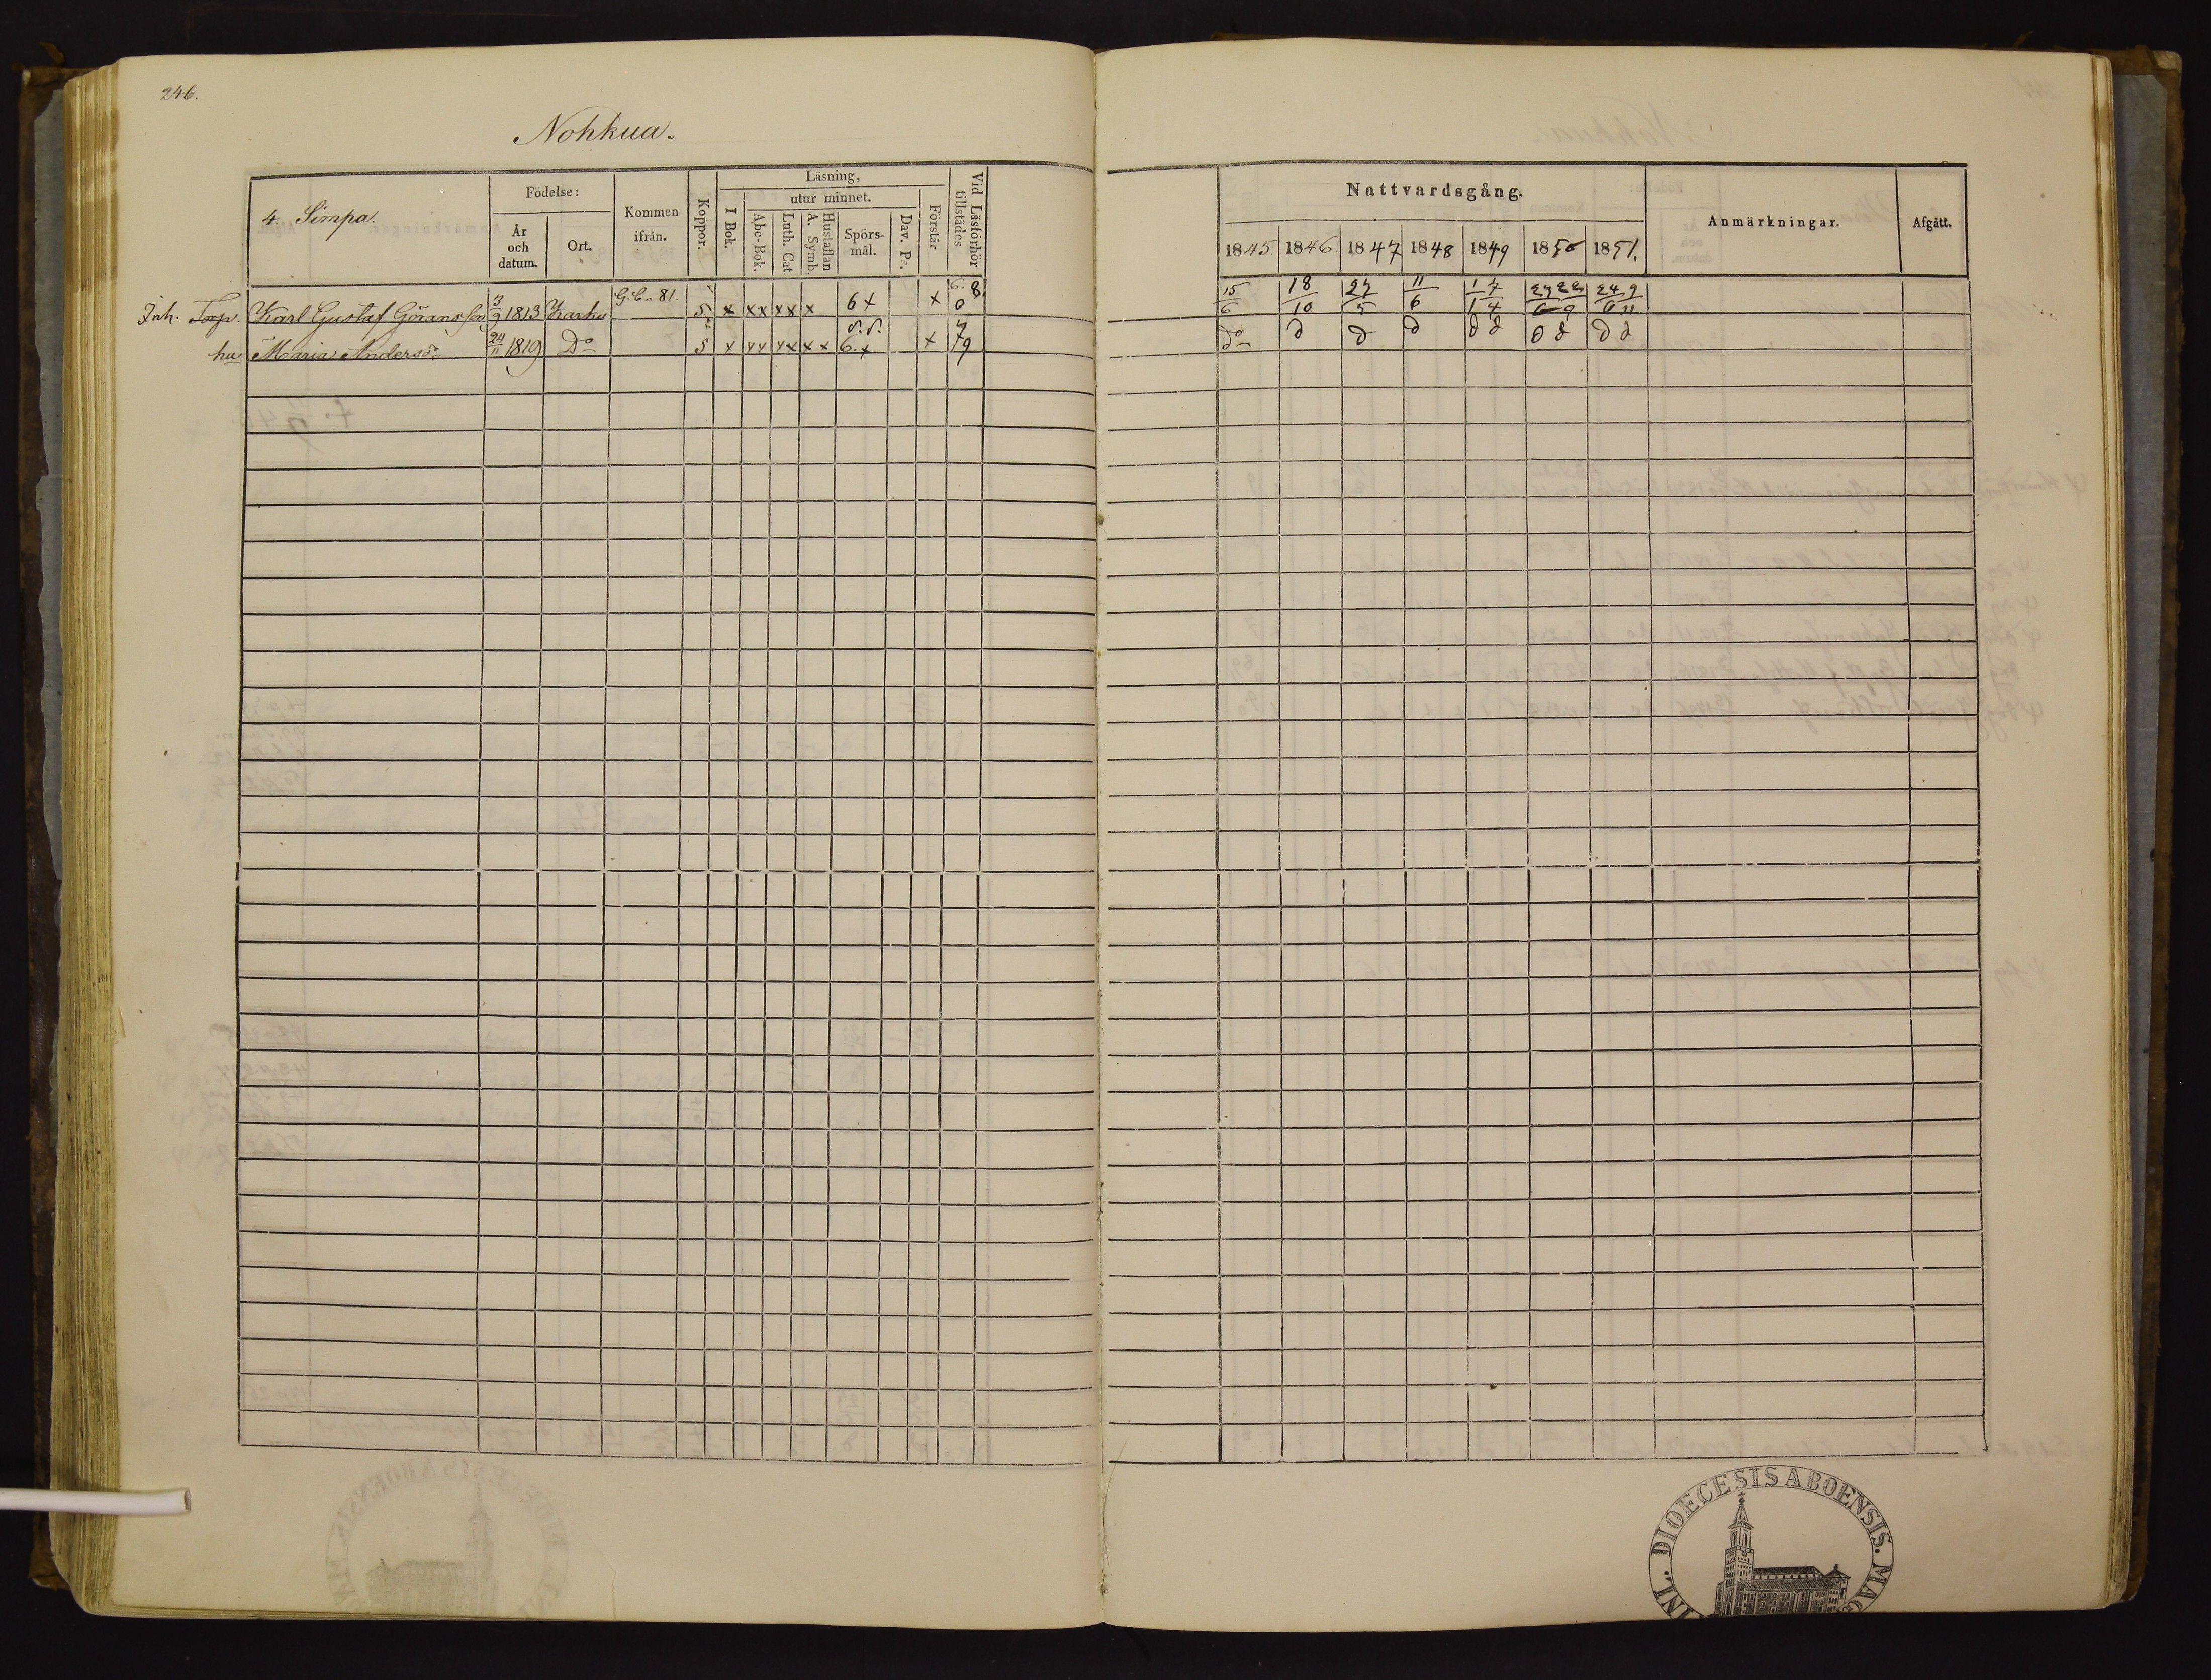 246.
Nohkua.
4. Simpa.
Födelse:
År och datum.
Ort.
Kommen ifrån.
Koppor.
Läsning,
I Bok.
utur minnet.
Abc-Bok.
Luth. Cat
Hustaflan A. Symb.
Spörsmål.
Dav. Ps.
Förstår
Vid Läsförhör tillstädes
Nattvardsgång.
1845. 1846. 1847 1848 1849 1850 1851.
Anmärkningar.
Afgått.
Inh. Torp. Karl Gustaf Göransson 3/9 1813 Karku G.b. 81. 5 x xx xx x 6 x x 6. 8 0 15/6 18/10 27/5 11/6 1 7/1 4 24 9/6 11
hu Maria Andersdr 24/11 1819 Do 5 x xx xx xx 6. x x 7 9 do d d d d d d d d d
DIOECESIS ABOENSIS. MAG
INL.